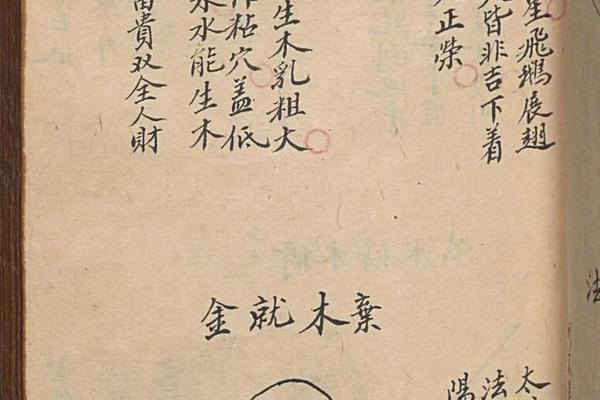 星飛鵝展翅
皆非吉下着
正榮
生木乳粗大
粘穴盖低
水能生木
貴双全人財
棄木就金
太
法
陽